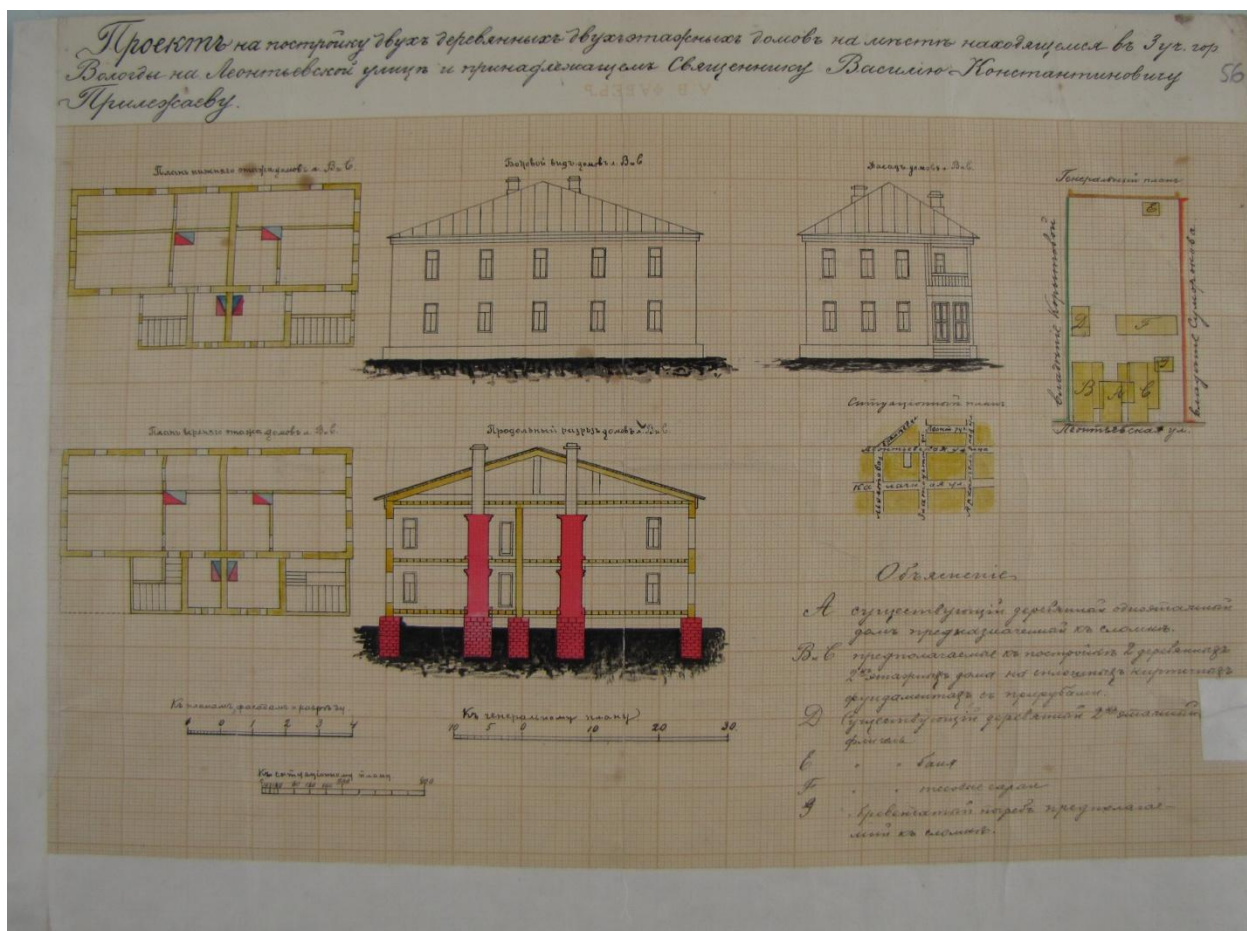 Проектъ на постройку двухъ деревянныхъ двухъэтажныхъ домовъ на мѣстѣ находящемся въ 3 уч. гор
Вологды на Леонтьевской улицѣ и принадлежащемъ Священнику Василію Константиновичу
Прилежаеву.
56
Планъ нижняго этажа домовъ л. В и С
Боковой видъ домовъ л. В и С
Фасадъ домовъ л. В и С
Генеральный планъ
владѣніе
владѣніе
Е
Д
F
В
А
С
Леонтьевская ул.
Планъ верхняго этажа домовъ л. В и С
Продольный разрѣзъ домовъ л. В и С
Ситуаціонный планъ
Объясненіе
А существующій деревянный одноэтажный
домъ предназначенный къ сломкѣ.
В и С предполагаемые къ постройкѣ 2 деревянныхъ
2хъ этажныхъ дома на сплошныхъ кирпичныхъ
фундаментахъ съ прирубами.
Д Существующій деревянный 2хъ этажный
флигель
Е " " баня
F " "
погребъ предполагае-
мый къ сломкѣ.
Къ планамъ, фасадамъ и разрѣзу
0 1 2 3 4
Къ генеральному плану
10 5 0 10 20 30
Къ ситуаціонному плану